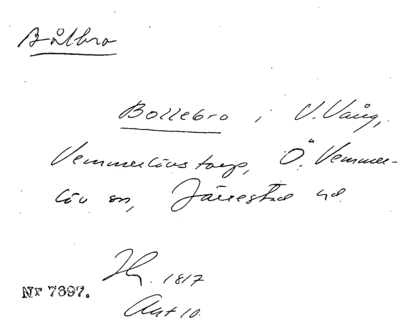 Bålbro
Bollebro i V. Vång,
Vemmerlövstorp, Ö. Vemmer-
löv sn, Järrestad hd.
Hy. 1817
Nr 7897.
Akt 10.